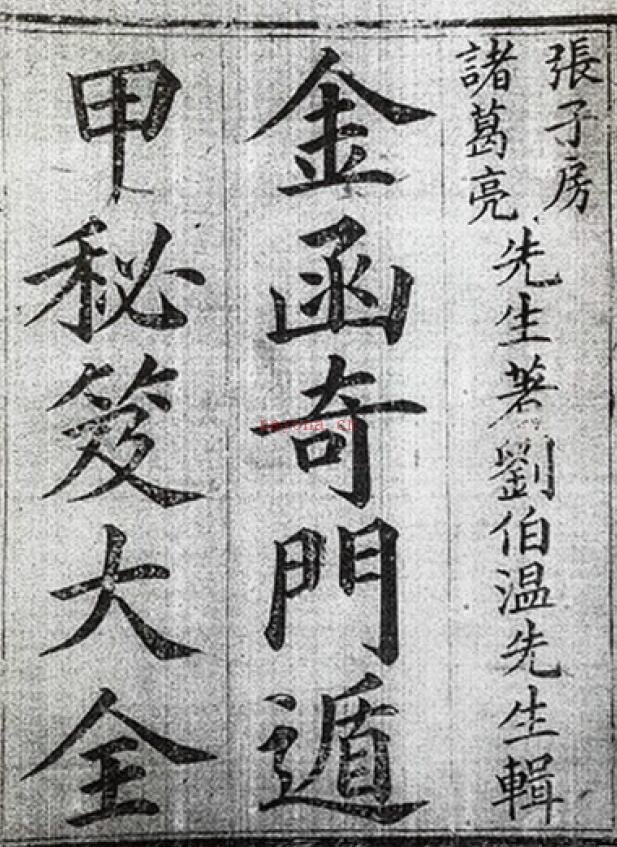 張子房
諸葛亮
先生著劉伯温先生輯
金函奇門遁
甲秘笈大全